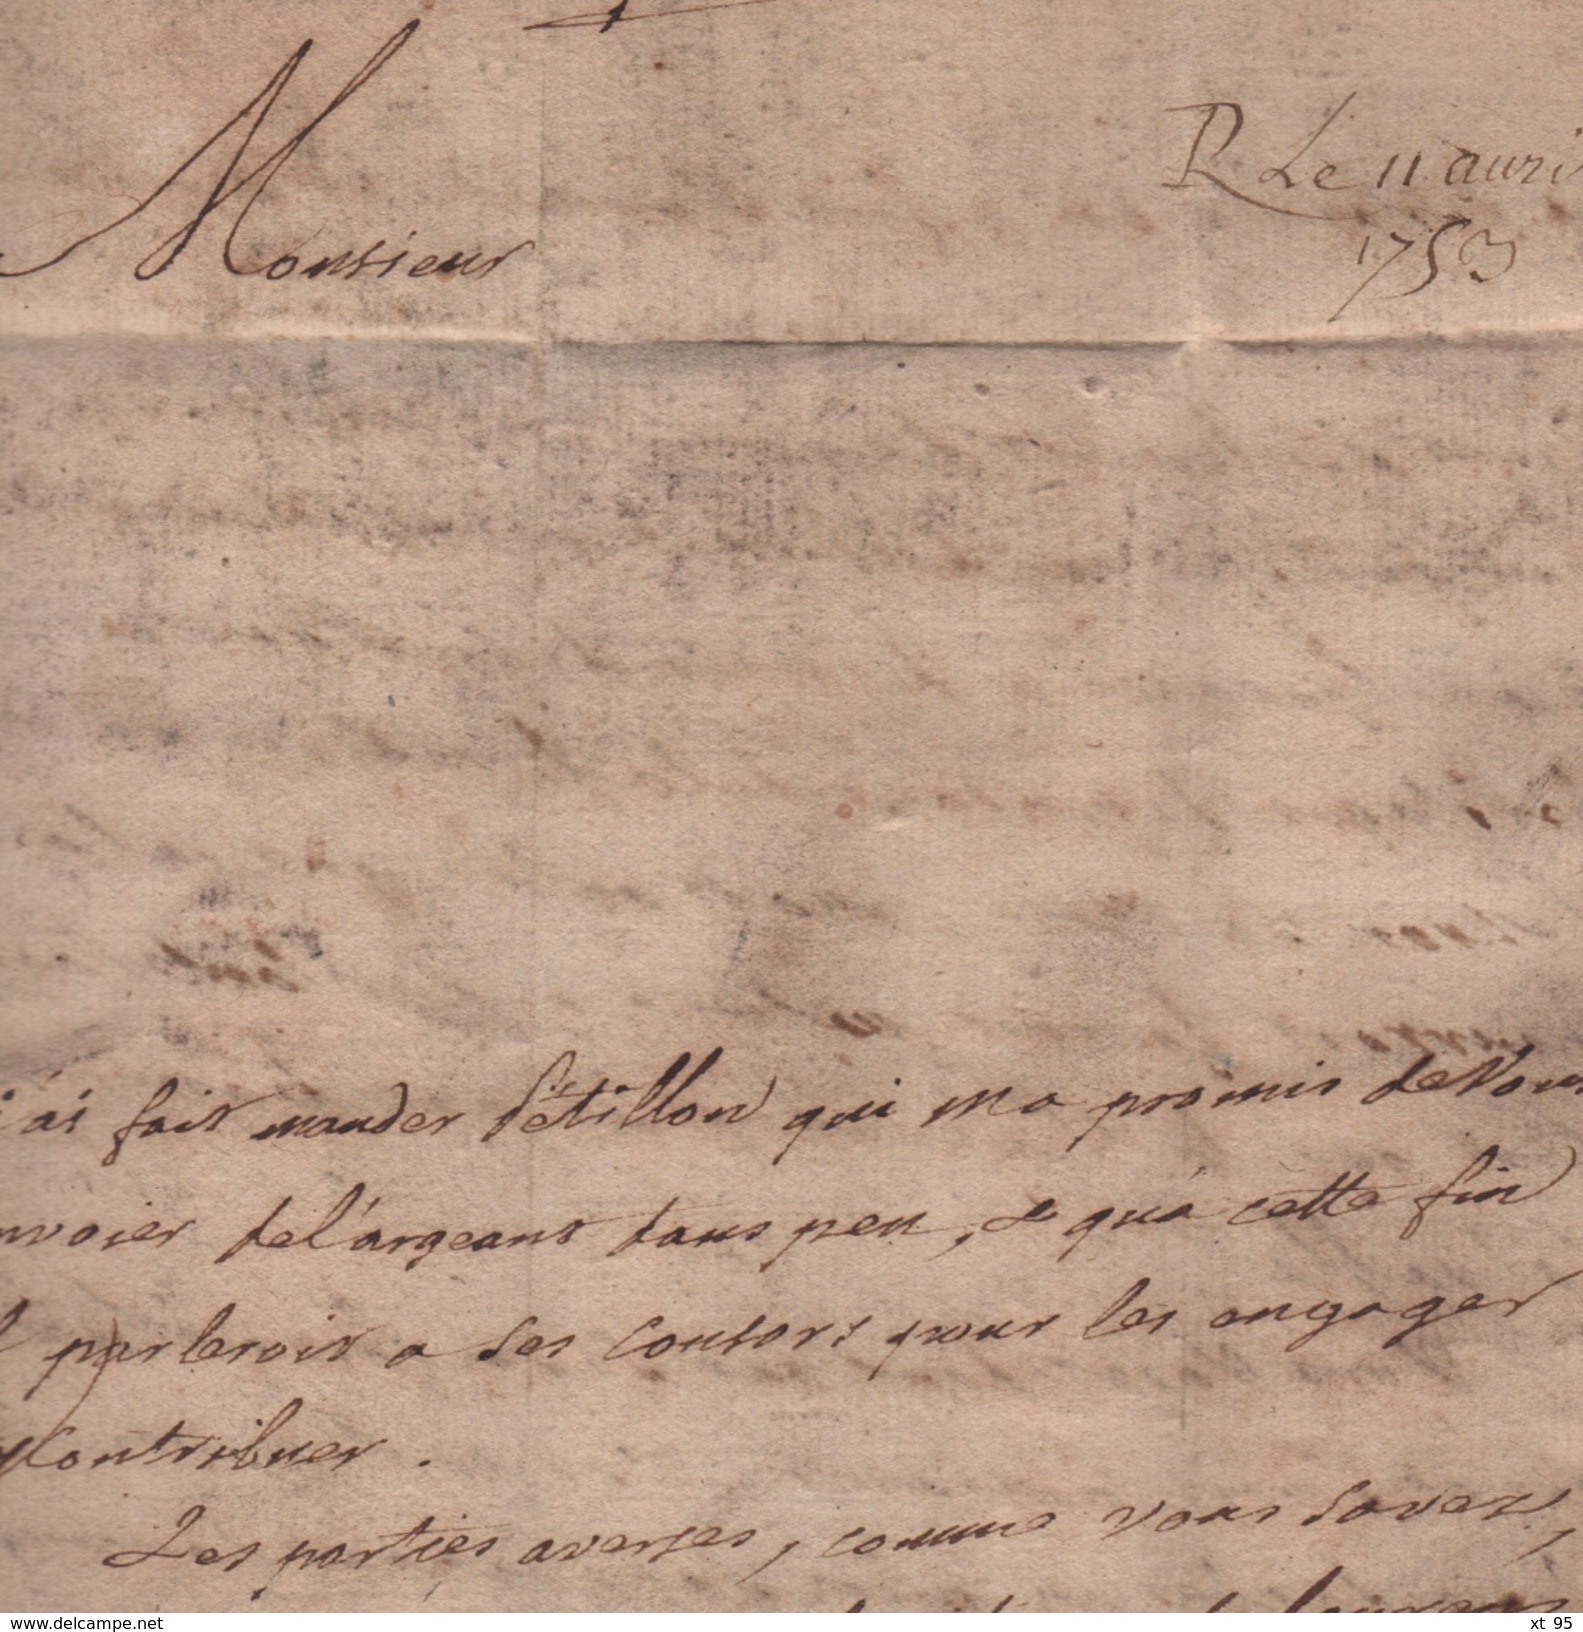 Monsieur
R Le 11 auri
1753
j'ai fait mander Pétillon qui ma promis de Vous
nvoier de l'argeant dans peu, & qu'a cette fin
l parleroit a ses Consors pour les engager
Contribuer.
Les parties averses, comme vous savez,
www.delcampe.net
xt 95